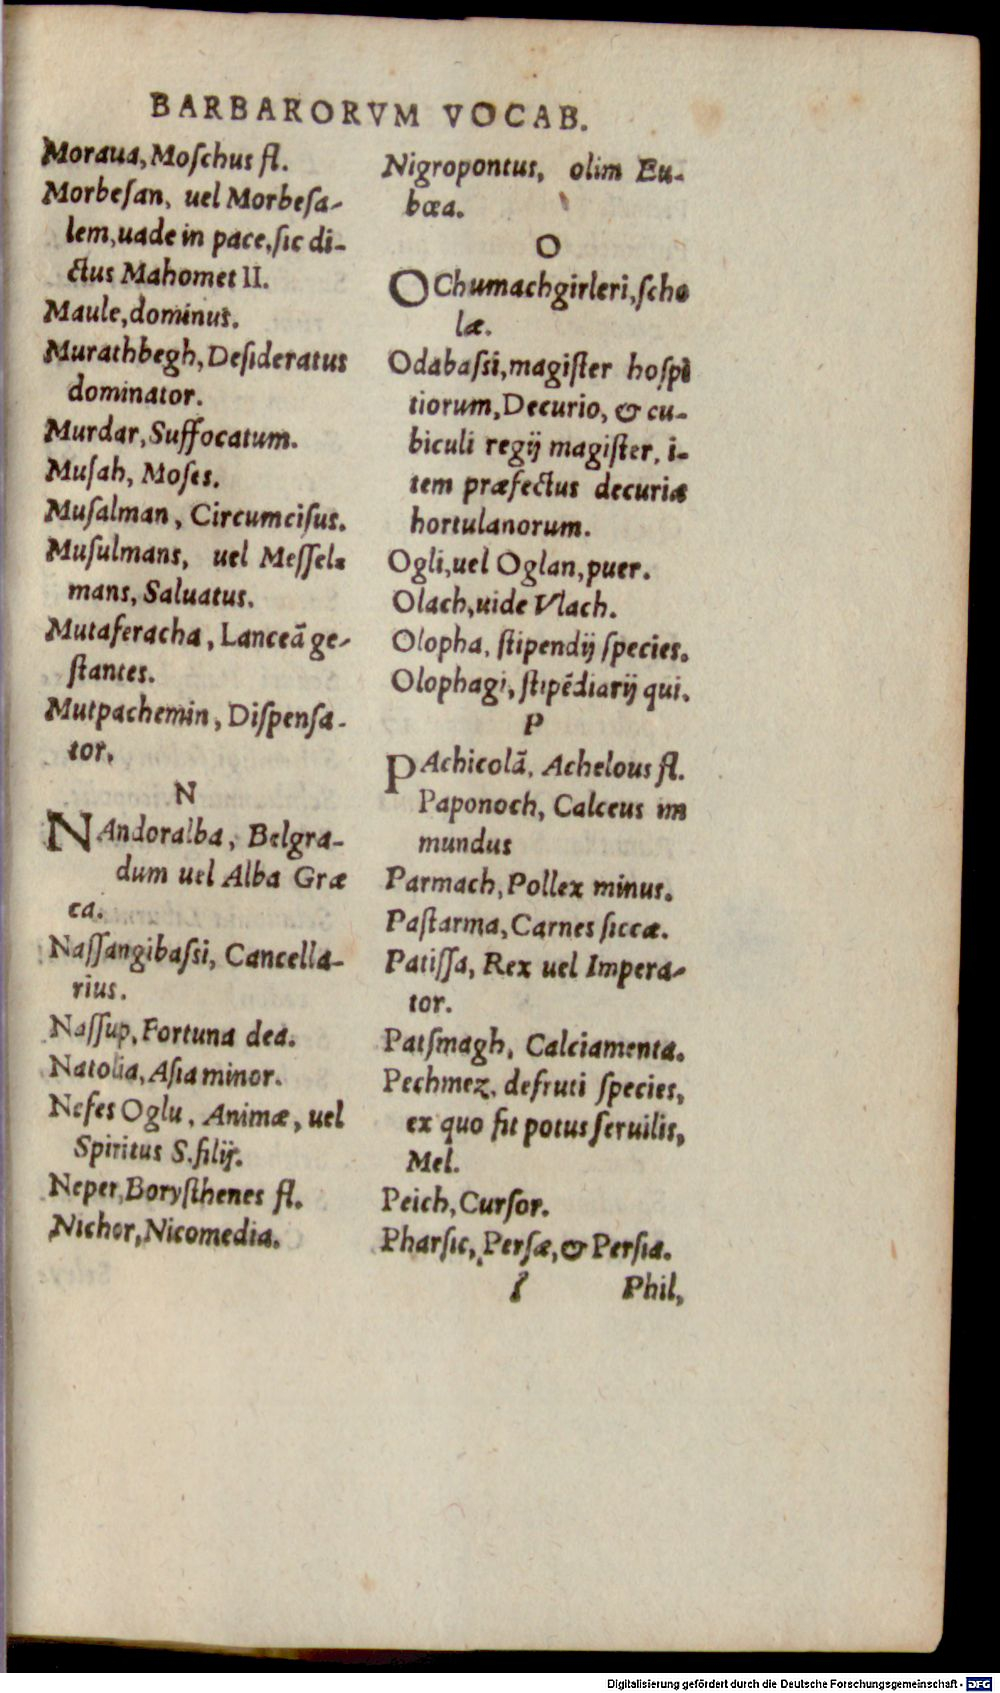 BARBARORVM VOCAB.
Moraua, Moſchus fl.
Morbeſan, uel Morbeſa-
lem, uade in pace, ſic di-
ctus Mahomet II.
Maule, dominus.
Murathbegh, Deſideratus
dominator.
Murdar, Suffocatum.
Muſah, Moſes.
Muſalman, Circumciſus.
Muſulmans, uel Meſſel-
mans, Saluatus.
Mutaferacha, Lanceā ge-
ſtantes.
Mutpachemin, Diſpenſa-
tor.
N
NAndoralba, Belgra-
dum uel Alba Græ
ca.
Naſſangibaſsi, Cancella-
rius.
Naſſup, Fortuna dea.
Natolia, Aſia minor.
Nefes Oglu, Animæ, uel
Spiritus S. filij.
Neper, Boryſthenes fl.
Nichor, Nicomedia.
Nigropontus, olim Eu-
bœa.
O
OChumachgirleri, ſcho
læ.
Odabaſsi, magiſter hoſpi
tiorum, Decurio, & cu-
biculi regij magiſter, i-
tem præfectus decuriæ
hortulanorum.
Ogli, uel Oglan, puer.
Olach, uide Vlach.
Olopha, ſtipendij ſpecies.
Olophagi, ſtipēdiarij qui.
P
PAchicolā, Achelous fl.
Paponoch, Calceus im
mundus
Parmach, Pollex minus.
Paſtarma, Carnes ſiccæ.
Patiſſa, Rex uel Impera-
tor.
Patſmagh, Calciamenta.
Pechmez, defruti ſpecies,
ex quo fit potus ſeruilis,
Mel.
Peich, Curſor.
Pharſic, Perſæ, & Perſia.
Phil,
Digitalisierung gefördert durch die Deutsche Forschungsgemeinschaft - DFG